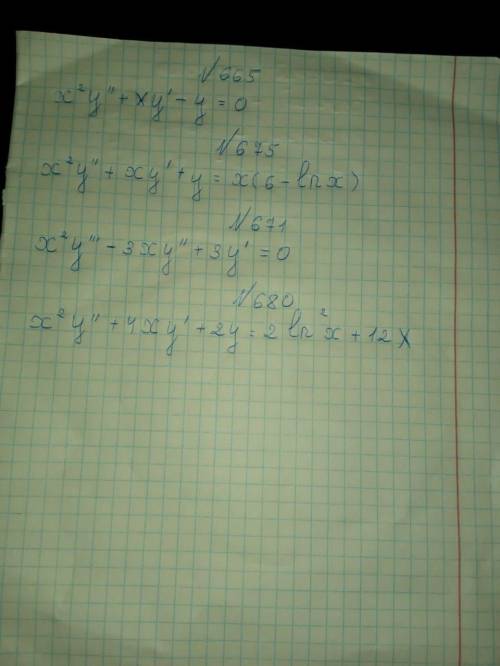 №665
x²y'' + xy' - y = 0
№675
x²y'' + xy' + y = x(6 - ln x)
№671
x²y''' - 3xy'' + 3y' = 0
№680
x²y'' + 4xy' + 2y = 2 ln²x + 12x